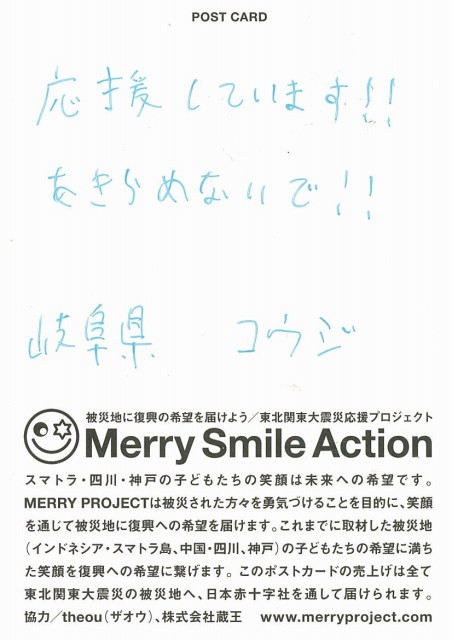 POST CARD
応援しています!!
あきらめないで!!
岐阜県 コウジ
被災地に復興の希望を届けよう/東北関東大震災応援プロジェクト
Merry Smile Action
スマトラ・四川・神戸の子どもたちの笑顔は未来への希望です。
MERRY PROJECTは被災された方々を勇気づけることを目的に、笑顔
を通じて被災地に復興への希望を届けます。これまでに取材した被災地
(インドネシア・スマトラ島、中国・四川、神戸)の子どもたちの希望に満ち
た笑顔を復興への希望に繋げます。このポストカードの売上げは全て
東北関東大震災の被災地へ、日本赤十字社を通して届けられます。
協力/theou(ザオウ)、株式会社蔵王 www.merryproject.com